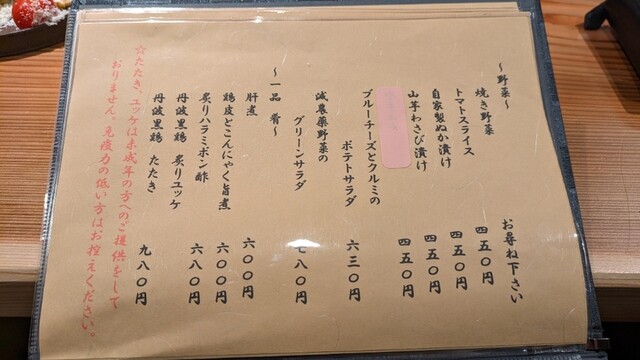 ～野菜～ お尋ね下さい
焼き野菜 四五〇円
トマトスライス 四五〇円
自家製ぬか漬け 四五〇円
山芋わさび漬け 四五〇円
ブルーチーズとクルミの
ポテトサラダ 六三〇円
減農薬野菜の
グリーンサラダ 七八〇円
～一品 肴～
肝煮 六〇〇円
鶏皮とこんにゃく旨煮 六〇〇円
炙りハラミポン酢 六八〇円
丹波黒鶏 炙りユッケ
丹波黒鶏 たたき 九八〇円
☆たたき、ユッケは未成年の方へのご提供をして
おりません。免疫力の低い方はお控えください。